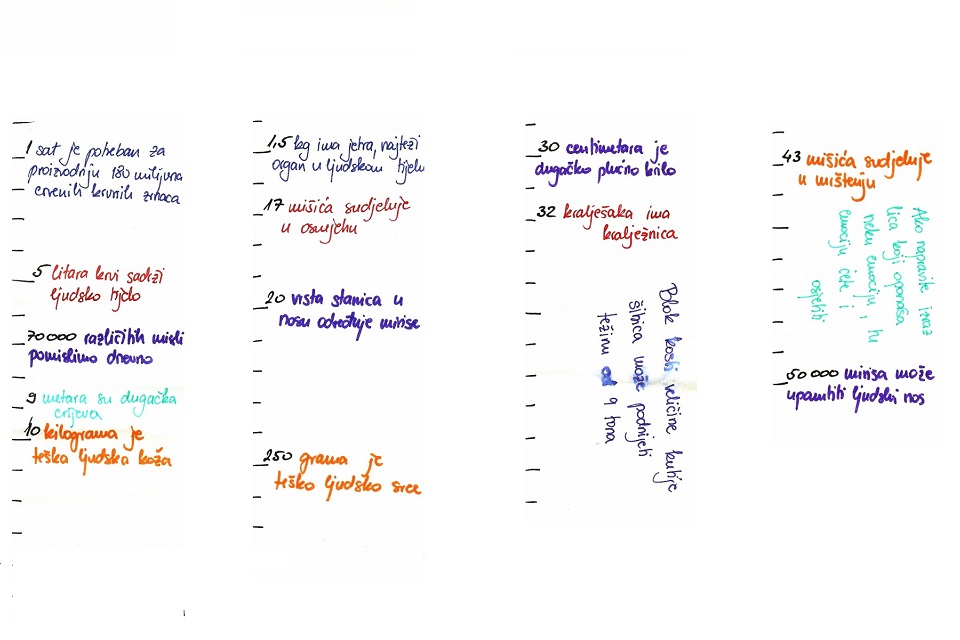 1 sat je potreban za
proizvodnju 180 milijuna
crvenih krvnih zrnaca
5 litara krvi sadrži
ljudsko tijelo
70 000 različitih misli
pomislimo dnevno
9 metara su dugačka
crijeva
10 kilograma je
teška ljudska koža
1,5 kg ima jetra, najteži
organ u ljudskom tijelu
17 mišića sudjeluje
u osmjehu
20 vrsta stanica u
nosu određuje mirise
250 grama je
teško ljudsko srce
30 centimetara je
dugačko plućno krilo
32 kralješaka ima
kralježnica
Blok kosti veličine kutije
šibica može podnijeti
težinu od 9 tona
43 mišića sudjeluje
u mrštenju
Ako napravite izraz
lica koji oponaša
neku emociju, tu
emociju ćete i
osjetiti
50 000 mirisa može
upamtiti ljudski nos